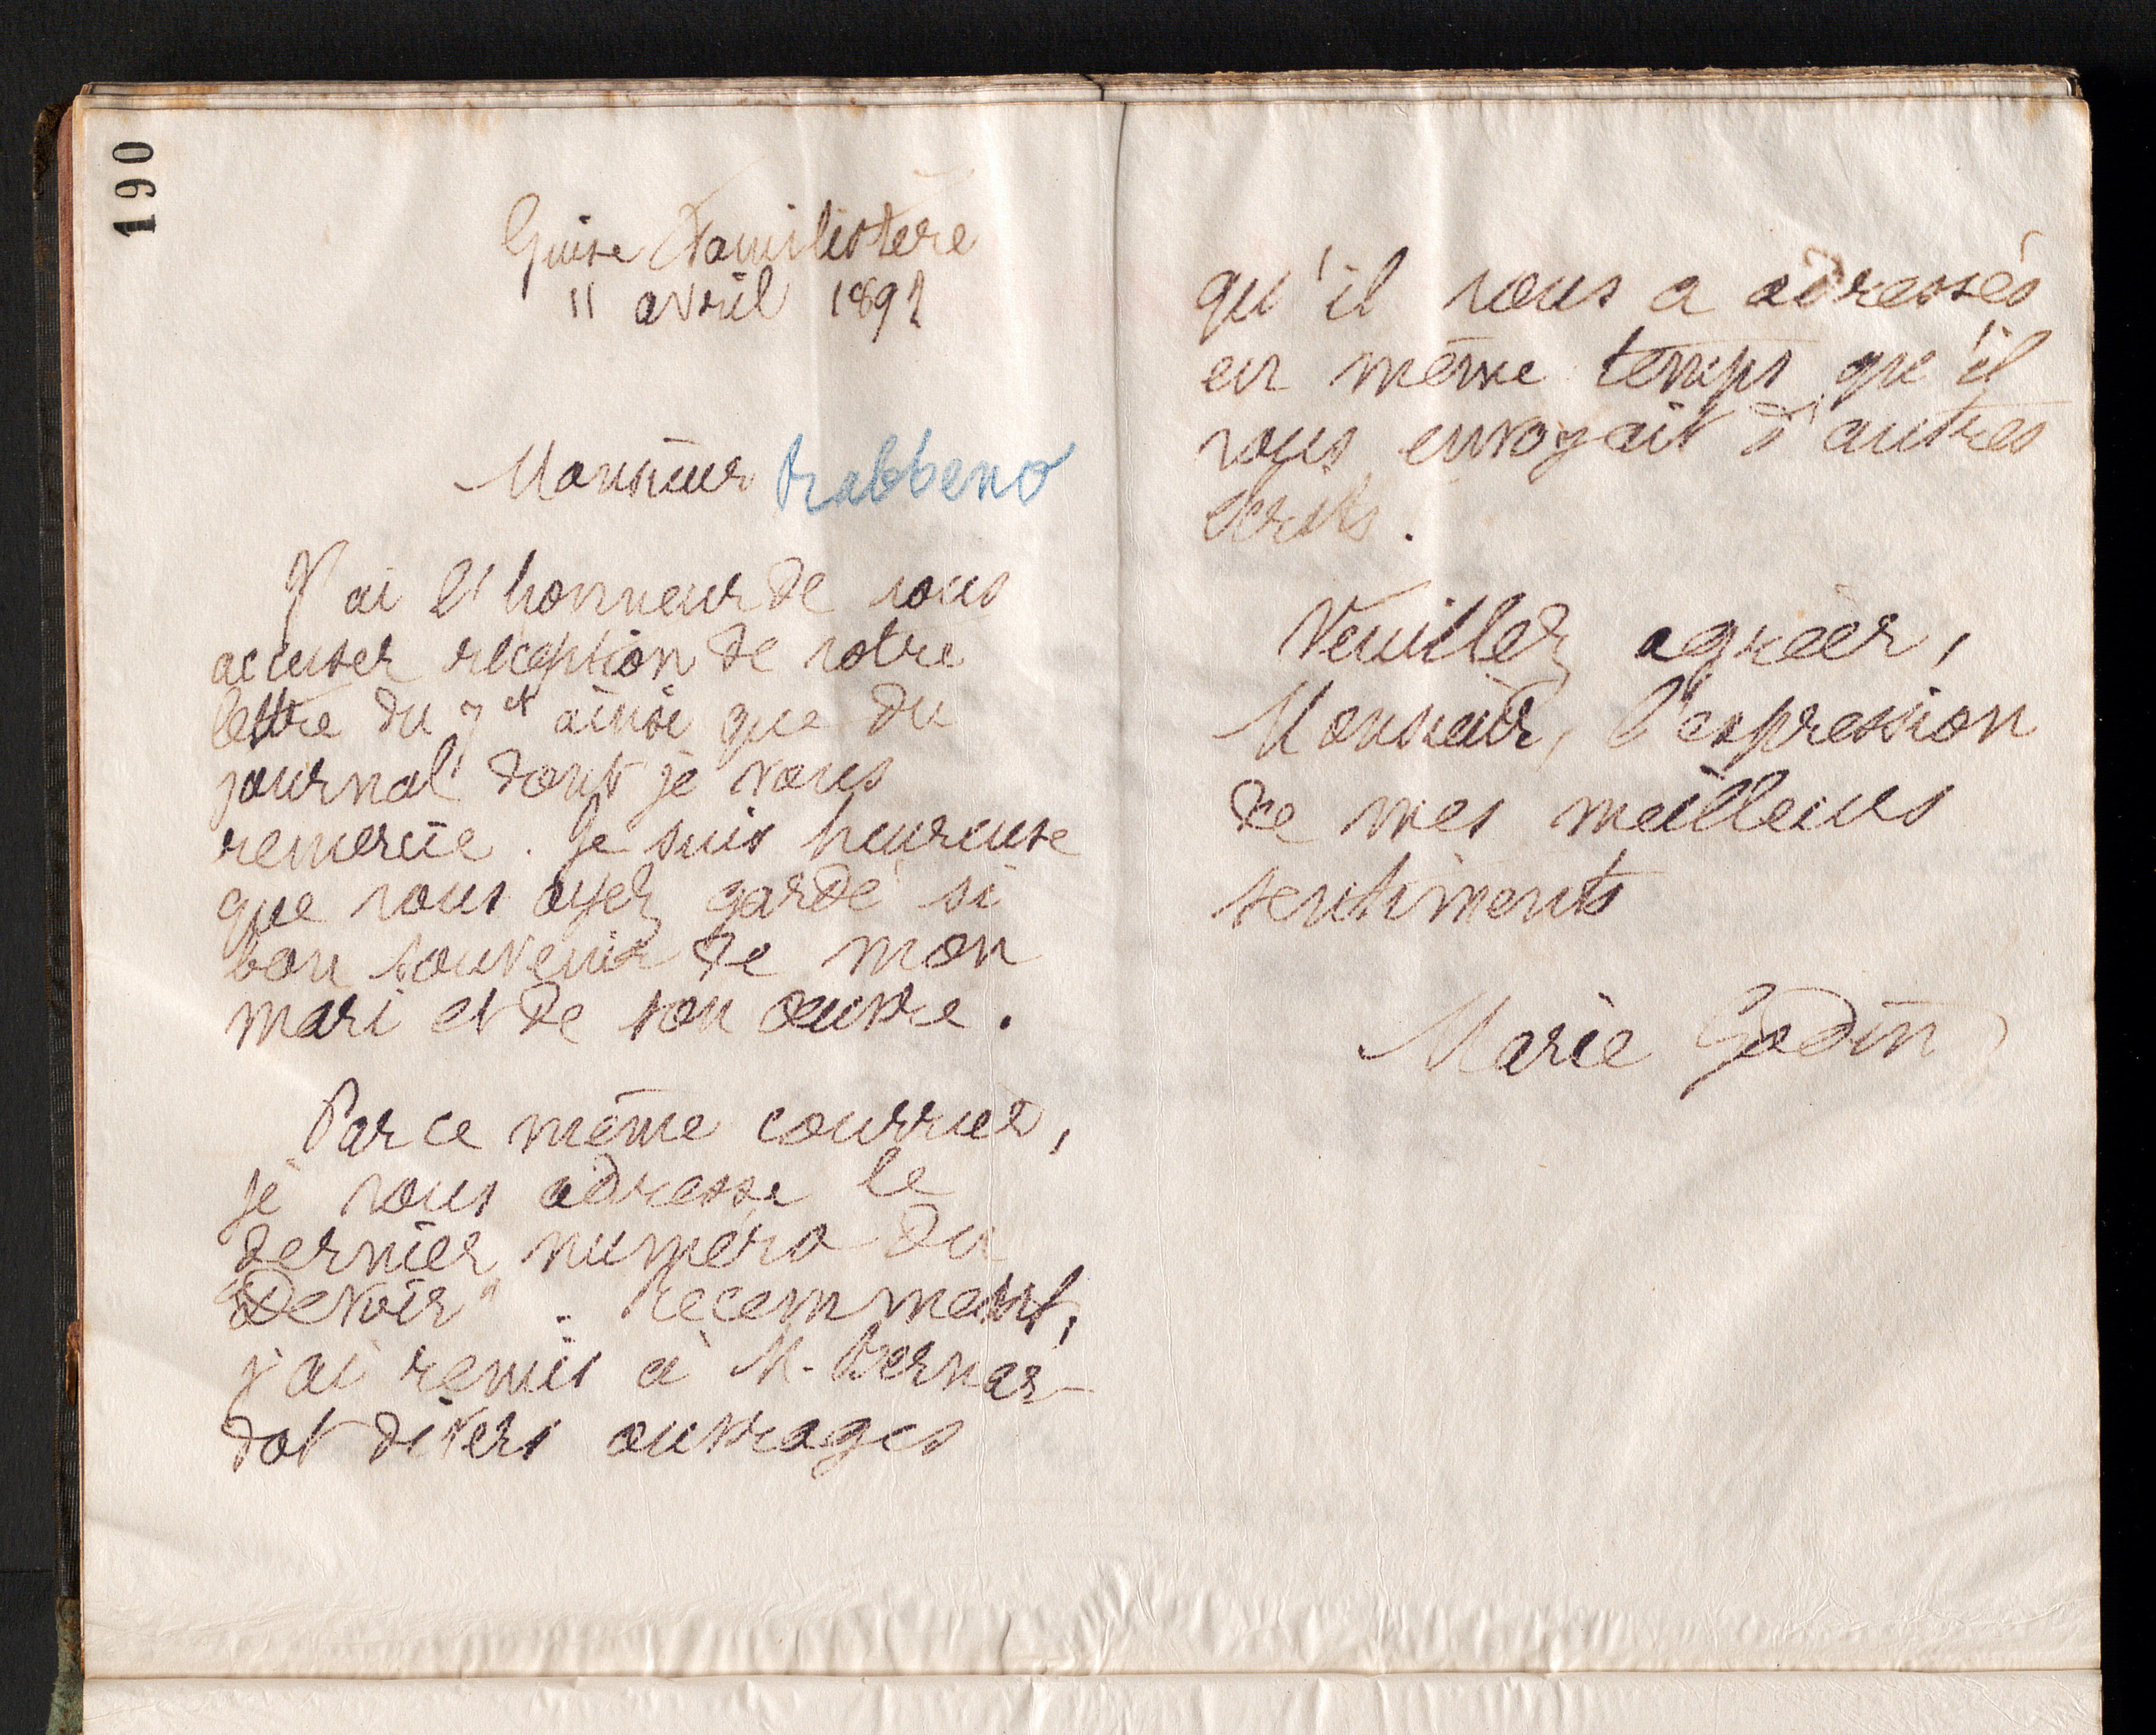 190
Guise Familistère
11 avril 1891
Monsieur Rabbeno
J'ai l'honneur de vous
accuser réception de votre
lettre du 7 ct ainsi que du
journal dont je vous
remercie. Je suis heureuse
que vous ayez gardé si
bon souvenir de mon
mari et de son œuvre.
Par ce même courrier,
je vous adresse le
dernier numéro du
"Devoir". Récemment,
j'ai remis à M. Bernar-
dot divers ouvrages
qu'il vous a adressés
en même temps qu'il
vous envoyait d'autres
écrits.
Veuillez agréer,
Monsieur, l'expression
de mes meilleurs
sentiments
Marie Godin